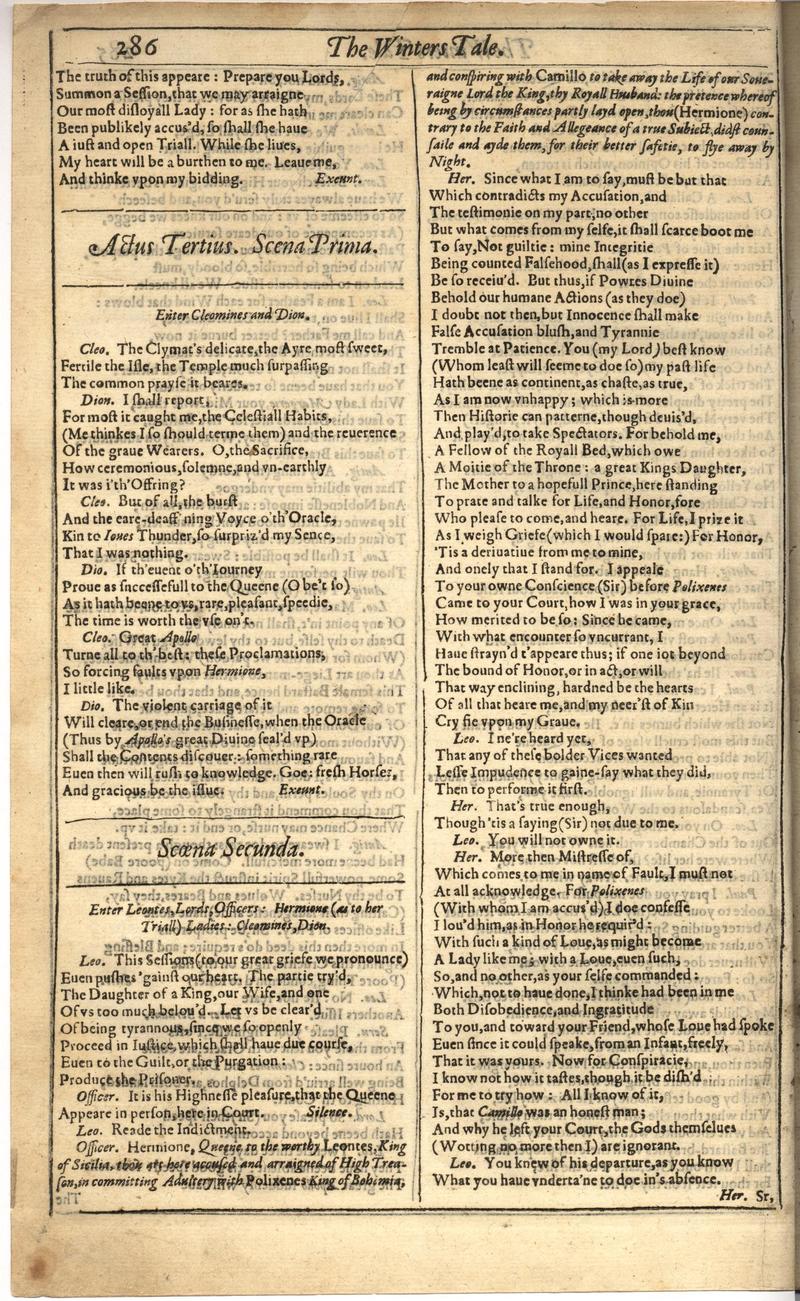 286
The Winters Tale.
The truth of this appeare : Prepare you Lords,
Summon a Seſſion, that we may arraigne
Our moſt diſloyall Lady : for as ſhe hath
Been publikely accus'd, ſo ſhall ſhe haue
A iuſt and open Triall. While ſhe liues,
My heart will be a burthen to me. Leaue me,
And thinke vpon my bidding. Exeunt.
Actus Tertius. Scena Prima.
Enter Cleomines and Dion.
Cleo. The Clymat's delicate, the Ayre moſt ſweet,
Fertile the Iſle, the Temple much ſurpaſſing
The common prayſe it beares.
Dion. I ſhall report,
For moſt it caught me, the Celeſtiall Habits,
(Me thinkes I ſo ſhould terme them) and the reuerence
Of the graue Wearers. O, the Sacrifice,
How ceremonious, ſolemne, and vn-earthly
It was i'th'Offring?
Cleo. But of all, the burſt
And the eare-deaff'ning Voyce o'th'Oracle,
Kin to Ioues Thunder, ſo ſurpriz'd my Sence,
That I was nothing.
Dio. If th'euent o'th'Iourney
Proue as ſucceſſefull to the Queene (O be't ſo)
As it hath beene to vs, rare, pleaſant, ſpeedie,
The time is worth the vſe on't.
Cleo. Great Apollo
Turne all to th'beſt : theſe Proclamations,
So forcing faults vpon Hermione,
I little like.
Dio. The violent carriage of it
Will cleare, or end the Buſineſſe, when the Oracle
(Thus by Apollo's great Diuine ſeal'd vp)
Shall the Contents diſcouer : ſomething rare
Euen then will ruſh to knowledge. Goe : freſh Horſes,
And gracious be the iſſue. Exeunt.
Scœna Secunda.
Enter Leontes, Lords, Officers : Hermione (as to her
Triall) Ladies : Cleomines, Dion.
Leo. This Seſſions (to our great griefe we pronounce)
Euen puſhes 'gainſt our heart. The partie try'd,
The Daughter of a King, our Wife, and one
Of vs too much belou'd. Let vs be clear'd
Of being tyrannous, ſince we ſo openly
Proceed in Iuſtice, which ſhall haue due courſe,
Euen to the Guilt, or the Purgation :
Produce the Priſoner.
Officer. It is his Highneſſe pleaſure, that the Queene
Appeare in perſon, here in Court. Silence.
Leo. Reade the Indictment.
Officer. Hermione, Queene to the worthy Leontes, King
of Sicilia, thou art here accuſed and arraigned of High Trea-
ſon, in committing Adultery with Polixenes King of Bohemia,
and conſpiring with Camillo to take away the Life of our Soue-
raigne Lord the King, thy Royall Husband: the pretence whereof
being by circumſtances partly layd open, thou (Hermione) con-
trary to the Faith and Allegeance of a true Subiect, didſt coun-
ſaile and ayde them, for their better ſafetie, to flye away by
Night.
Her. Since what I am to ſay, muſt be but that
Which contradicts my Accuſation, and
The teſtimonie on my part, no other
But what comes from my ſelfe, it ſhall ſcarce boot me
To ſay, Not guiltie : mine Integritie
Being counted Falſehood, ſhall (as I expreſſe it)
Be ſo receiu'd. But thus, if Powres Diuine
Behold our humane Actions (as they doe)
I doubt not then, but Innocence ſhall make
Falſe Accuſation bluſh, and Tyrannie
Tremble at Patience. You (my Lord) beſt know
(Whom leaſt will ſeeme to doe ſo) my paſt life
Hath beene as continent, as chaſte, as true,
As I am now vnhappy ; which is more
Then Hiſtorie can patterne, though deuis'd,
And play'd, to take Spectators. For behold me,
A Fellow of the Royall Bed, which owe
A Moitie of the Throne : a great Kings Daughter,
The Mother to a hopefull Prince, here ſtanding
To prate and talke for Life, and Honor, fore
Who pleaſe to come, and heare. For Life, I prize it
As I weigh Griefe (which I would ſpare:) For Honor,
'Tis a deriuatiue from me to mine,
And onely that I ſtand for. I appeale
To your owne Conſcience (Sir) before Polixenes
Came to your Court, how I was in your grace,
How merited to be ſo : Since he came,
With what encounter ſo vncurrant, I
Haue ſtrayn'd t'appeare thus; if one iot beyond
The bound of Honor, or in act, or will
That way enclining, hardned be the hearts
Of all that heare me, and my neer'ſt of Kin
Cry fie vpon my Graue.
Leo. I ne're heard yet,
That any of theſe bolder Vices wanted
Leſſe Impudence to gaine-ſay what they did,
Then to performe it firſt.
Her. That's true enough,
Though 'tis a ſaying (Sir) not due to me.
Leo. You will not owne it.
Her. More then Miſtreſſe of,
Which comes to me in name of Fault, I muſt not
At all acknowledge. For Polixenes
(With whom I am accus'd) I doe confeſſe
I lou'd him, as in Honor he requir'd :
With ſuch a kind of Loue, as might become
A Lady like me ; with a Loue, euen ſuch,
So, and no other, as your ſelfe commanded :
Which, not to haue done, I thinke had been in me
Both Diſobedience, and Ingratitude
To you, and toward your Friend, whoſe Loue had ſpoke
Euen ſince it could ſpeake, from an Infant, freely,
That it was yours. Now for Conſpiracie,
I know not how it taſtes, though it be diſh'd
For me to try how : All I know of it,
Is, that Camillo was an honeſt man ;
And why he left your Court, the Gods themſelues
(Wotting no more then I) are ignorant.
Leo. You knew of his departure, as you know
What you haue vnderta'ne to doe in's abſence.
Her. Sr,